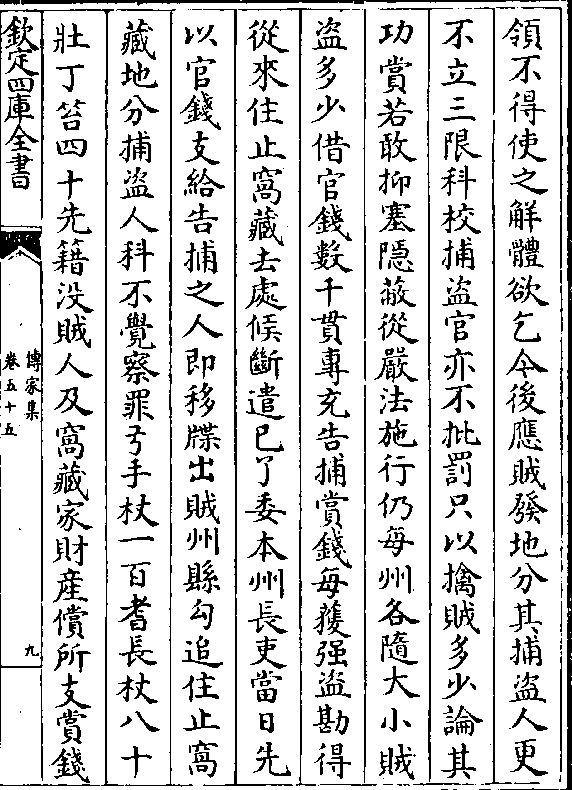 領不得使之解體欲乞今後應賊發地分其捕盜人更
不立三限科校捕盜官亦不批罰只以擒賊多少論其
功賞若敢抑塞隱蔽從嚴法施行仍每州各隨大小賊
盜多少借官錢數千貫專充告捕賞錢每獲强盜勘得
從來住止窩藏去處候斷遣已了委本州長吏當日先
以官錢支給告捕之人即移牒出賊州縣勾追住止窩
藏地分捕盜人科不覺察罪弓手杖一百耆長杖八十
壯丁笞四十先籍没賊人及窩藏家財産償所支賞錢
欽定四庫全書
傳家集
卷五十五
九